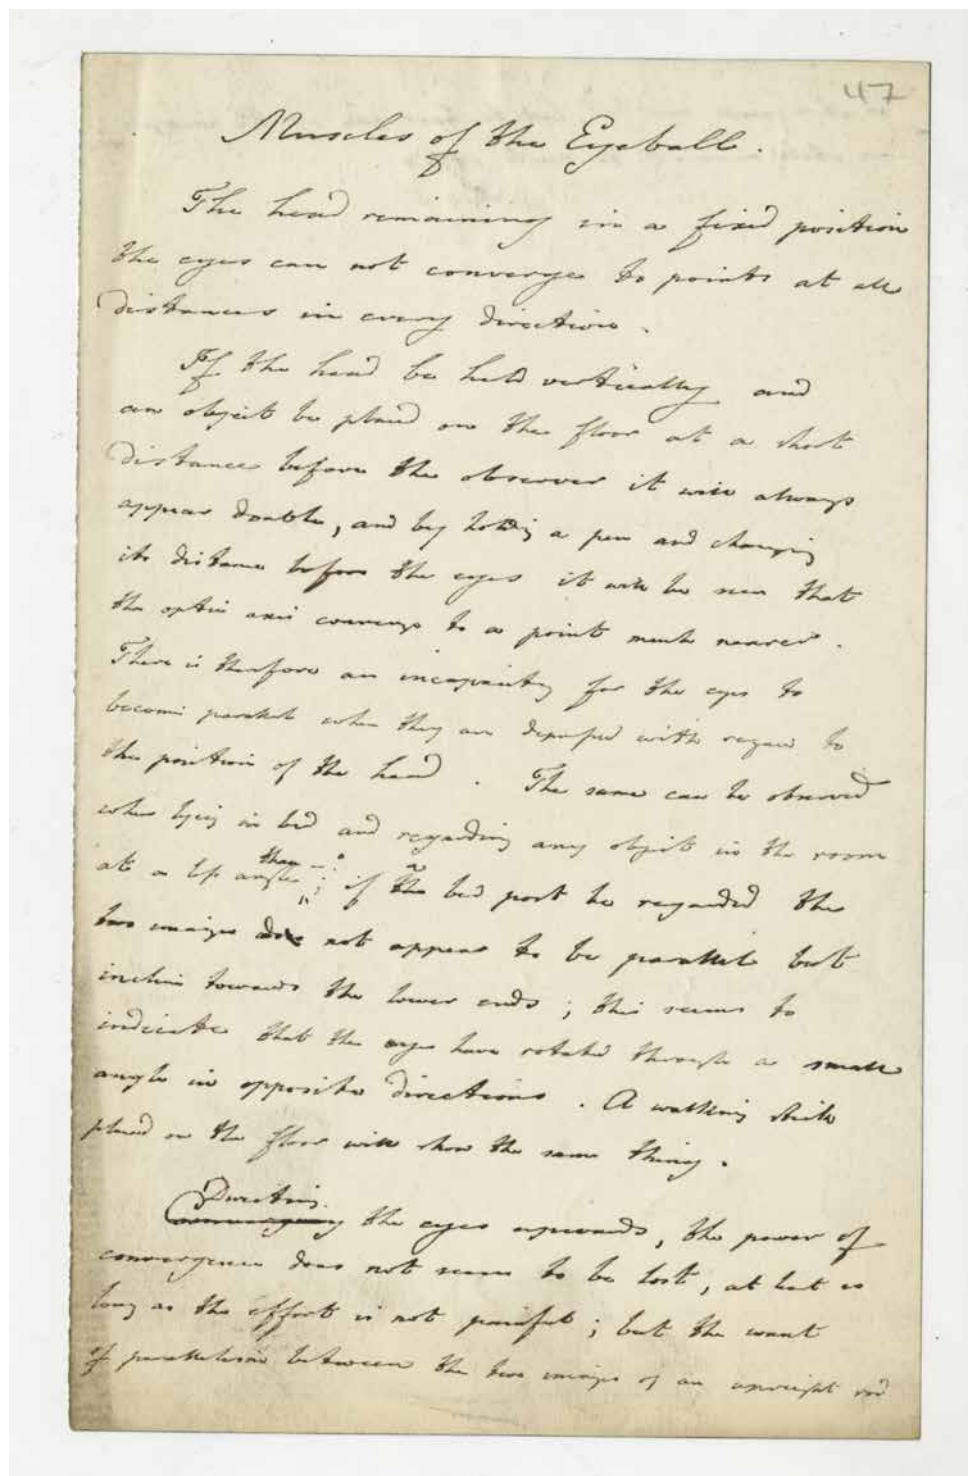 47
Muscles of the Eyeball.
The head remaining in a fixed position
the eyes can not converge to points at all
distances in every direction.
If the head be held vertically and
an object be placed on the floor at a short
distance before the observer it will always
appear double, and by holding a pen and changing
its distance before the eyes it will be seen that
the optic axis converge to a point much nearer.
There is therefore an incapacity for the eyes to
become parallel when they are depressed with regard to
the position of the head. The same can be observed
when lying in bed and regarding any object in the room
at a less angle than 
; if the bed post be regarded the
two images do not appear to be parallel but
incline towards the lower ends; this seems to
indicate that the eyes have rotated through a small
angle in opposite directions. A walking stick
placed on the floor will show the same thing.
Directing
the eyes upwards, the power of
convergence does not seem to be lost, at least as
long as the effort is not painful; but the want
of parallelism between the two images of an upright rod